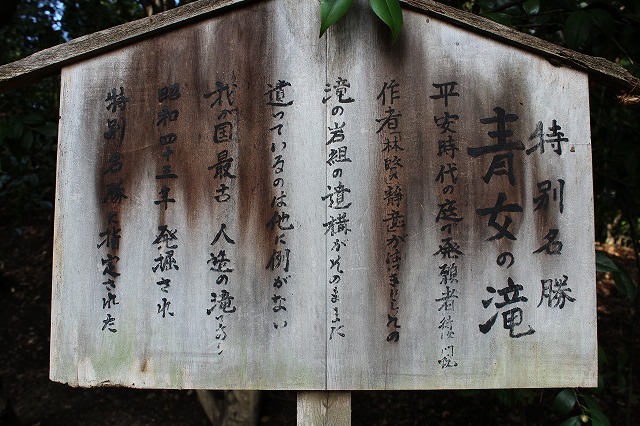 特別名勝
青女の滝
平安時代の庭で発願者待賢門院
作者林賢静意がはっきりしその
滝の岩組の遺構がそのままに
遺っているのは他に例がない
我が国最古 人造の滝である
昭和四十三年 発掘され
特別名勝に指定された